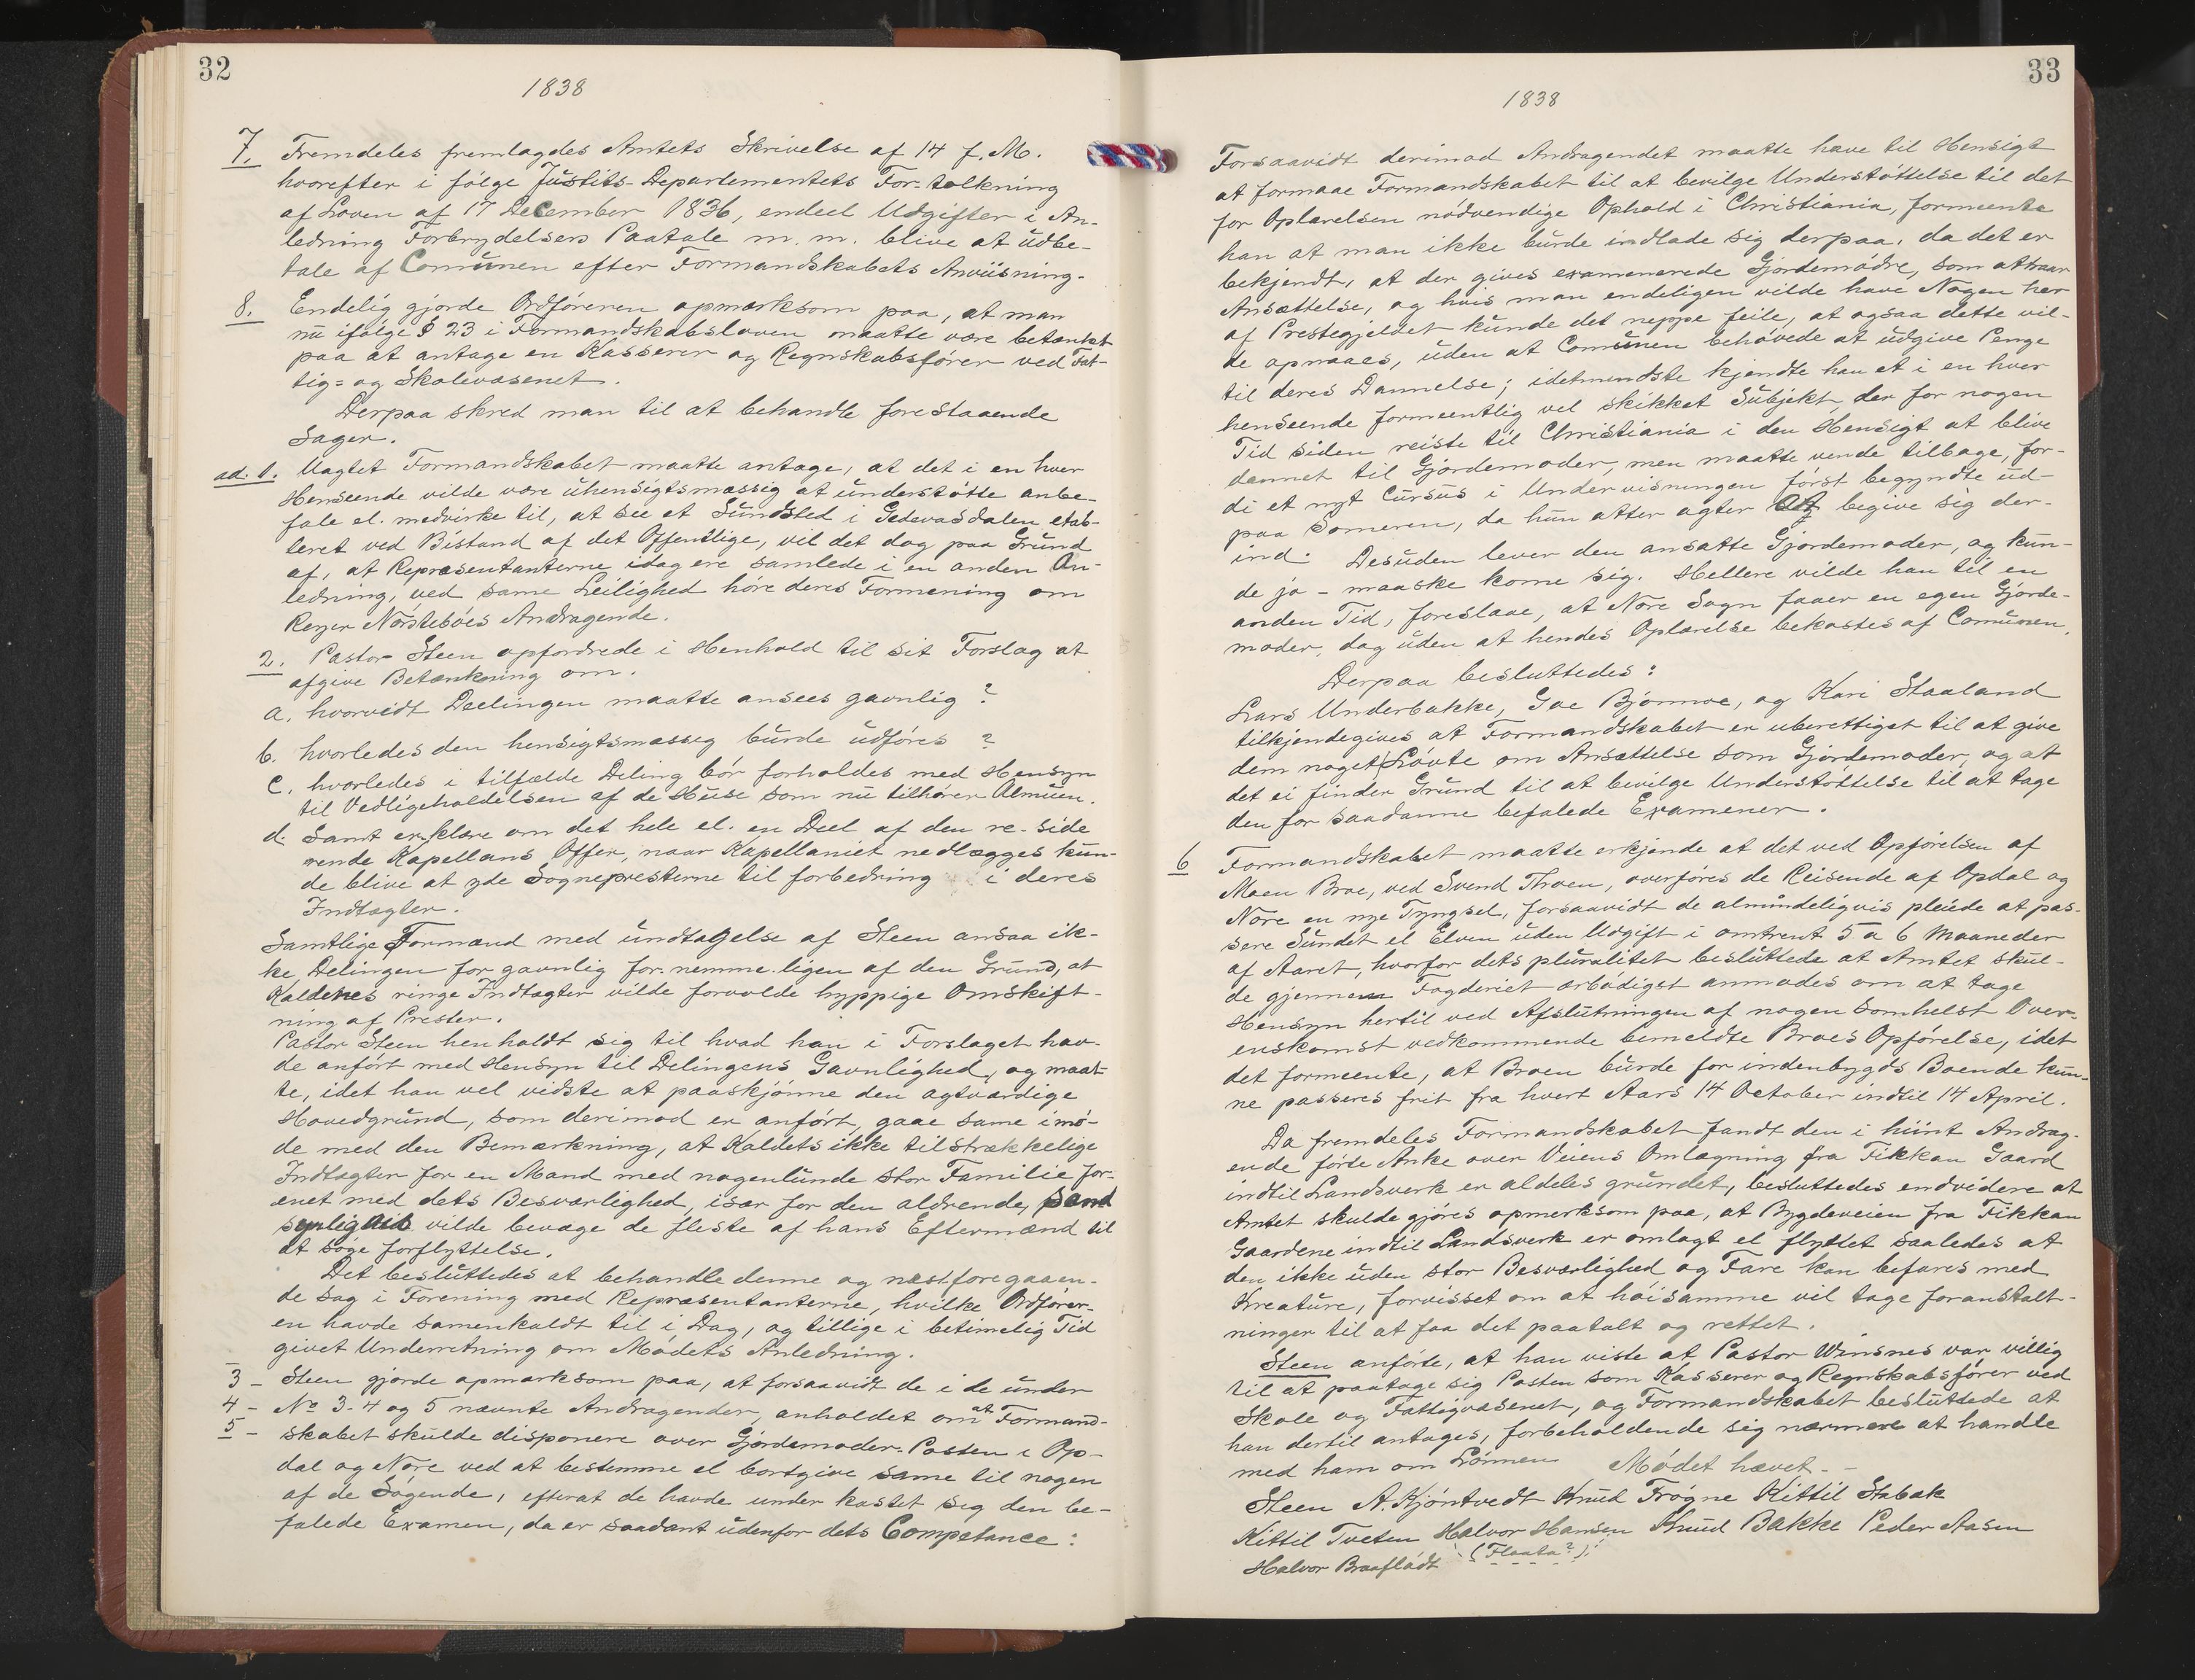 32
1838
7. Fremdeles fremlagdes Amtets Skrivelse af 14 f. M.
hvorefter i følge Justits-Departementets For-tolkning
af Loven af 17 December 1836, endeel Udgifter i An-
ledning Forbrydelsers Paatale m. m. blive at udbe-
tale af Comunen efter Formandskabets Anviisning.
8. Endelig gjorde Ordføreren opmærksom paa, at man
nu ifølge § 23 i Formandskabsloven maatte være betænkt
paa at antage en Kasserer og Regnskabsfører ved Fat-
tig= og Skolevæsenet.
Derpaa skred man til at behandle forestaaende
Sager.
ad. 1. Uagtet Formandskabet maatte antage, at det i en hver
Henseende vilde være uhensigtsmæssig at understøtte anbe-
fale el. medvirke til, at see et Sundsted i Gedevasdalen etab-
leret ved Bistand af det Offentlige, vil det dog paa Grund
af, at Repræsentanterne idag ere samlede i en anden An-
ledning, ved same Leilighed høre deres Formening om
Reyer Nørstebøes Andragende.
2. Pastor Steen opfordrede i Henhold til sit Forslag at
afgive Betænkning om.
a. hvorvidt Deelingen maatte ansees gavnlig?
b. hvorledes den hensigtsmæsseg burde udføres?
c. hvorledes i tilfælde Deling bør forholdes med Hensyn
til Vedligeholdelsen af de Huse som nu tilhører Almuen.
d. Samt erklære om det hele el. en Deel af den re-side
rende Kapellans Offer, naar Kapellaniet nedlægges kun-
de blive at yde Sognepresterne til forbedring i deres
Indtægter.
Samtlige Formænd med undtagelse af Steen ansaa ik-
ke Delingen for gavnlig for-nemme-ligen af den Grund, at
Kaldenes ringe Indtægter vilde forvolde hyppige Omskift-
ning af Prester.
Pastor Steen henholdt sig til hvad han i Forslaget hav-
de anført med Hensyn til Delingens Gavnlighed, og maat-
te, idet han vel vidste at paaskjønne den agtværdige
Hovedgrund, som derimod er anført, gaae same imø-
de med den Bemærkning, at Kaldets ikke tilstrækkelige
Indtægter for en Mand med nogenlunde stor Familie for-
enet med dets Besværlighed, især for den aldrende, sand
synligvis vilde bevæge de fleste af hans Eftermænd til
at søge forflyttelse.
Det besluttedes at behandle denne og næstforegaaen-
de Sag i Forening med Repræsentanterne, hvilke Ordfører-
en havde samenkaldt til i Dag, og tillige i betimelig Tid
givet Underretning om Mødets Anledning.
3 - Steen gjorde opmærksom paa, at forsaavidt de i de under
4 - No 3-4 og 5 nævnte Andragender, anholdet om at Formand-
5 - skabet skulde disponere over Gjordemoder-Posten i Op-
dal og Nore ved at bestemme el bortgive same til nogen
af de Søgende, efterat de havde under kastet sig den be-
falede Examen, da er saadant udenfor dets Competance:
33
1838
Forsaavidt derimod Andragendet maatte have til Hensigt
at formaae Formandskabet til at bevilge Understøttelse til det
for Oplærelsen nødvendige Ophold i Christiania, formeente
han at man ikke burde indlade sig derpaa, da det er
bekjendt, at der gives examenerede Gjordemødre, som attraar
Ansættelse, og hvis man endeligen vilde have Nogen her
af Prestegjeldet kunde det neppe feile, at ogsaa dette vil-
de opnaaes, uden at Comunen behøvede at udgive Penge
til deres Dannelse; idetmindste kjendte han et i en hver
henseende formeentlig vel skikket Subjekt, der for nogen
Tid siden reiste til Christiania i den Hensigt at blive
dannet til Gjordemoder, men maatte vende tilbage, for-
di et nyt Cursus i Undervisningen først begyndte ud-
paa Someren, da hun atter agter at begive sig der-
ind. Desuden lever den ansatte Gjordemoder, og kun-
de jo - maaske kome sig. Hellere vilde han til en
anden Tid, foreslaae, at Nore Sogn faaer en egen Gjorde-
moder, dog uden at hendes Oplærelse bekostes af Comunen.
Derpaa besluttedes:
Lars Underbakke, Goe Bjørnnoe, og Kari Staaland
tilkjendegives at Formandskabet er uberettiget til at give
dem noget Løvte om Ansættelse som Gjordemoder, og at
det ei finder Grund til at bevilge Understøttelse til at tage
den for saadanne befalede Examener.
6 Formandskabet maatte erkjende at det ved Opførelsen af
Moen Broe, ved Svend Throen, overføres de Reisende af Opdal og
Nore en nye Tyngsel, forsaavidt de almindeligvis pleiede at pas-
sere Sundet el Elven uden Udgift i omtrent 5 a 6 Maaneder
af Aaret, hvorfor dets pluralitet besluttede at Amtet skul-
de gjennem Fogderiet ærbødigst anmodes om at tage
Hensyn hertil ved Afslutningen af nogen somhelst Over-
enskomst vedkommende bemeldte Broes Opførelse, idet
det formeente, at Broen burde for indenbygds Boende kun-
ne passeres frit fra hvert Aars 14 October indtil 14 April.
Da fremdeles Formandskabet fandt den i hiint Andrag-
ende førte Anke over Veiens Omlægning fra Fikkan Gaard
indtil Landsverk er aldeles grundet, besluttedes endvidere at
Amtet skulde gjøres opmerksom paa, at Bygdeveien fra Fikkan
Gaardene indtil Landsverk er omlagt el flyttet saaledes at
den ikke uden stor Besværlighed og Fare kan befares med
Kreature, forvisset om at høisamme vil tage foranstalt-
ninger til at faa det paatalt og rettet.
Steen anførte, at han viste at Pastor Winsnes var villig
til at paatage sig Posten som Kasserer og Regnskabsfører ved
Skole og Fattigvæsenet, og Formandskabet besluttede at
han dertil antages, forbeholdende sig nærmere at handle
med ham om Lønnen Mødet hævet. -
Steen A. Kjøntvedt Knud Frøgne Kittil Stabak
Kittil Tveten Halvor Hansen Knud Bakke Peder Aasen
Halvor Braaflådt (Flaata?)